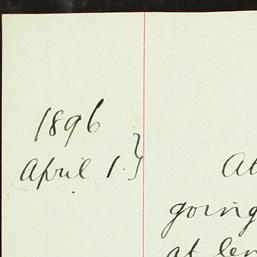 1896
April 1. }
At
going
at len